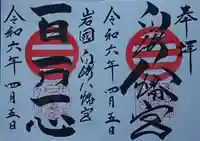 奉拝
白崎八幡宮
令和六年四月五日
岩國白崎八幡宮
百万一心
令和六年四月五日